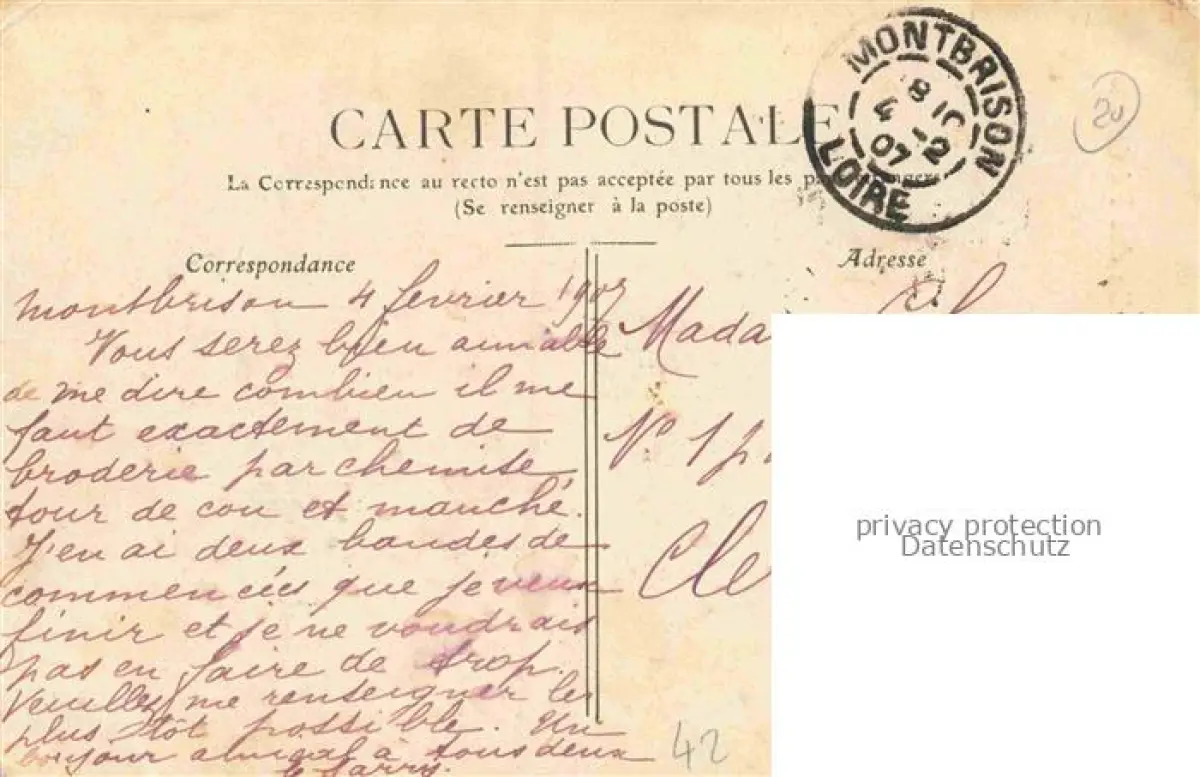 MONTBRISON
8 10
4 -2
07
LOIRE
20
CARTE POSTALE
La Correspondance au recto n'est pas acceptée par tous les
(Se renseigner à la poste)
Correspondance
Montbrison 4 fevrier 1907
Vous serez bien aimable
de me dire combien il me
faut exactement de
broderie par chemise,
tour de cou et manche.
J'en ai deux bandes de
commencées que je veux
finir et je ne voudrais
pas en faire de trop.
Veuillez me renseigner le
plus tôt possible. Un
bonjour amical à tous deux
Adresse
Mada
No 1
Cle
privacy protection
Datenschutz
42